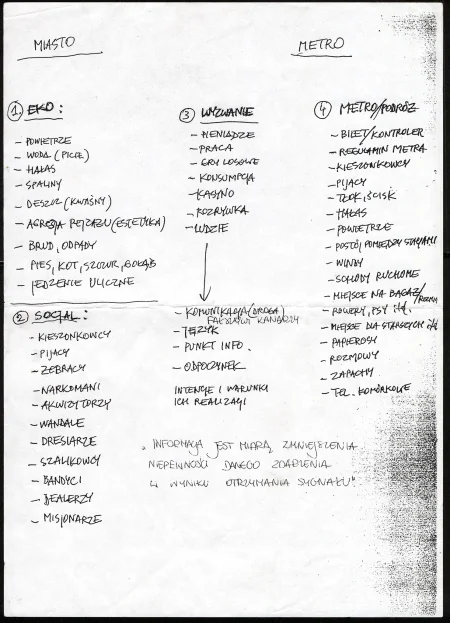 MIASTO
METRO
1 EKO:
- POWIETRZE
- WODA (PICIE)
- HAŁAS
- SPALINY
- DESZCZ (KWAŚNY)
- AGRESJA PEJZAŻU (ESTETYKA)
- BRUD, ODPADY
- PIES, KOT, SZCZUR, GOŁĄB
- JEDZENIE ULICZNE
2 SOCJAL:
- KIESZONKOWCY
- PIJACY
- ŻEBRACY
- NARKOMANI
- AKWIZYTORZY
- WANDALE
- DRESIARZE
- SZALIKOWCY
- BANDYCI
- DEALERZY
- MISJONARZE
3 WYZWANIE
- PIENIĄDZE
- PRACA
- GRY LOSOWE
- KONSUMPCJA
- KASYNO
- ROZRYWKA
- LUDZIE
- KOMUNIKACJA (DROGA)
FAŁSZYWI KANARZY
- JĘZYK
- PUNKT INFO.
- ODPOCZYNEK
INTENCJE I WARUNKI
ICH REALIZACJI
4 METRO/PODRÓŻ
- BILET/KONTROLER
- REGULAMIN METRA
- KIESZONKOWCY
- PIJACY
- TŁOK, ŚCISK
- HAŁAS
- POWIETRZE
- POSTÓJ POMIĘDZY STACJAMI
- WINDY
- SCHODY RUCHOME
- MIEJSCE NA BAGAŻ/
- ROWERY, PSY itd.
- MIEJSCE DLA STARSZYCH itd
- PAPIEROSY
- ROZMOWY
- ZAPACHY
- TEL. KOMÓRKOWE
"INFORMACJA JEST MIARĄ ZMNIEJSZENIA
NIEPEWNOŚCI DANEGO ZDARZENIA
W WYNIKU OTRZYMANIA SYGNAŁU".